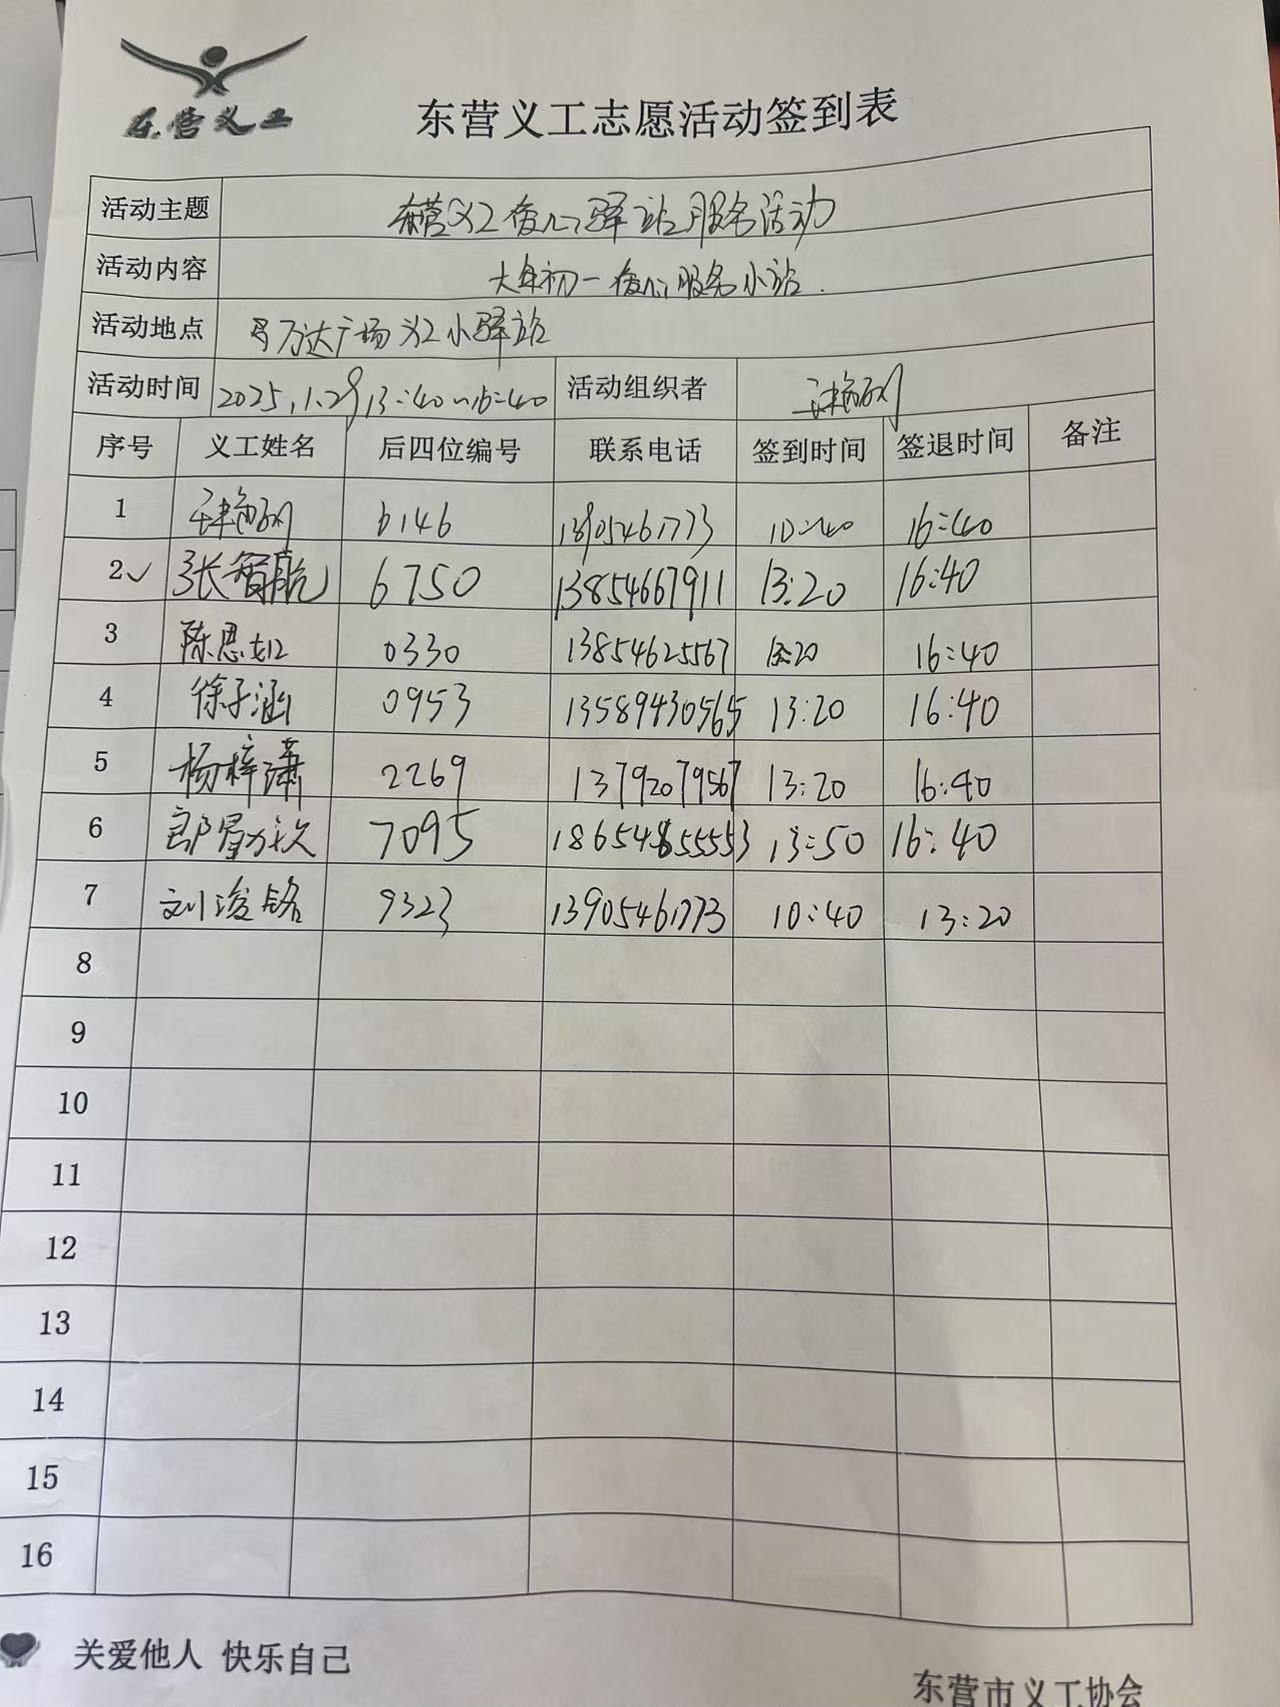 东营义工
东营义工志愿活动签到表
活动主题 东营义工暖心驿站服务活动
活动内容 大年初一暖心服务小站.
活动地点 万达广场义工小驿站
活动时间 2025.1.29 13:40~16:40 活动组织者
序号 义工姓名 后四位编号 联系电话 签到时间 签退时间 备注
1 6146 13905461773 10:40 16:40
2✓ 张智航 6750 13854667911 13:20 16:40
3 陈思 0330 13854625567 13:20 16:40
4 徐子涵 0953 13589430565 13:20 16:40
5 杨梓潇 2269 13792079567 13:20 16:40
6 7095 13:50 16:40
7 刘浚铭 9323 13905461773 10:40 13:20
8
9
10
11
12
13
14
15
16
关爱他人 快乐自己
东营市义工协会